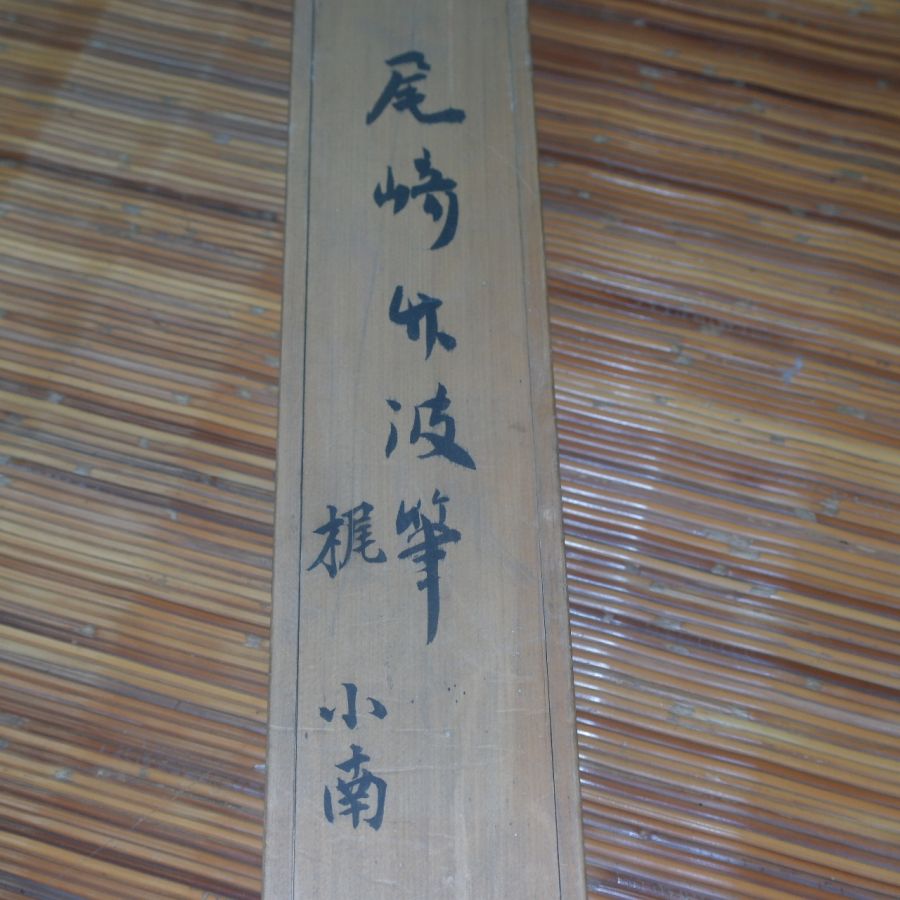 尾崎竹波筆
梶
小南